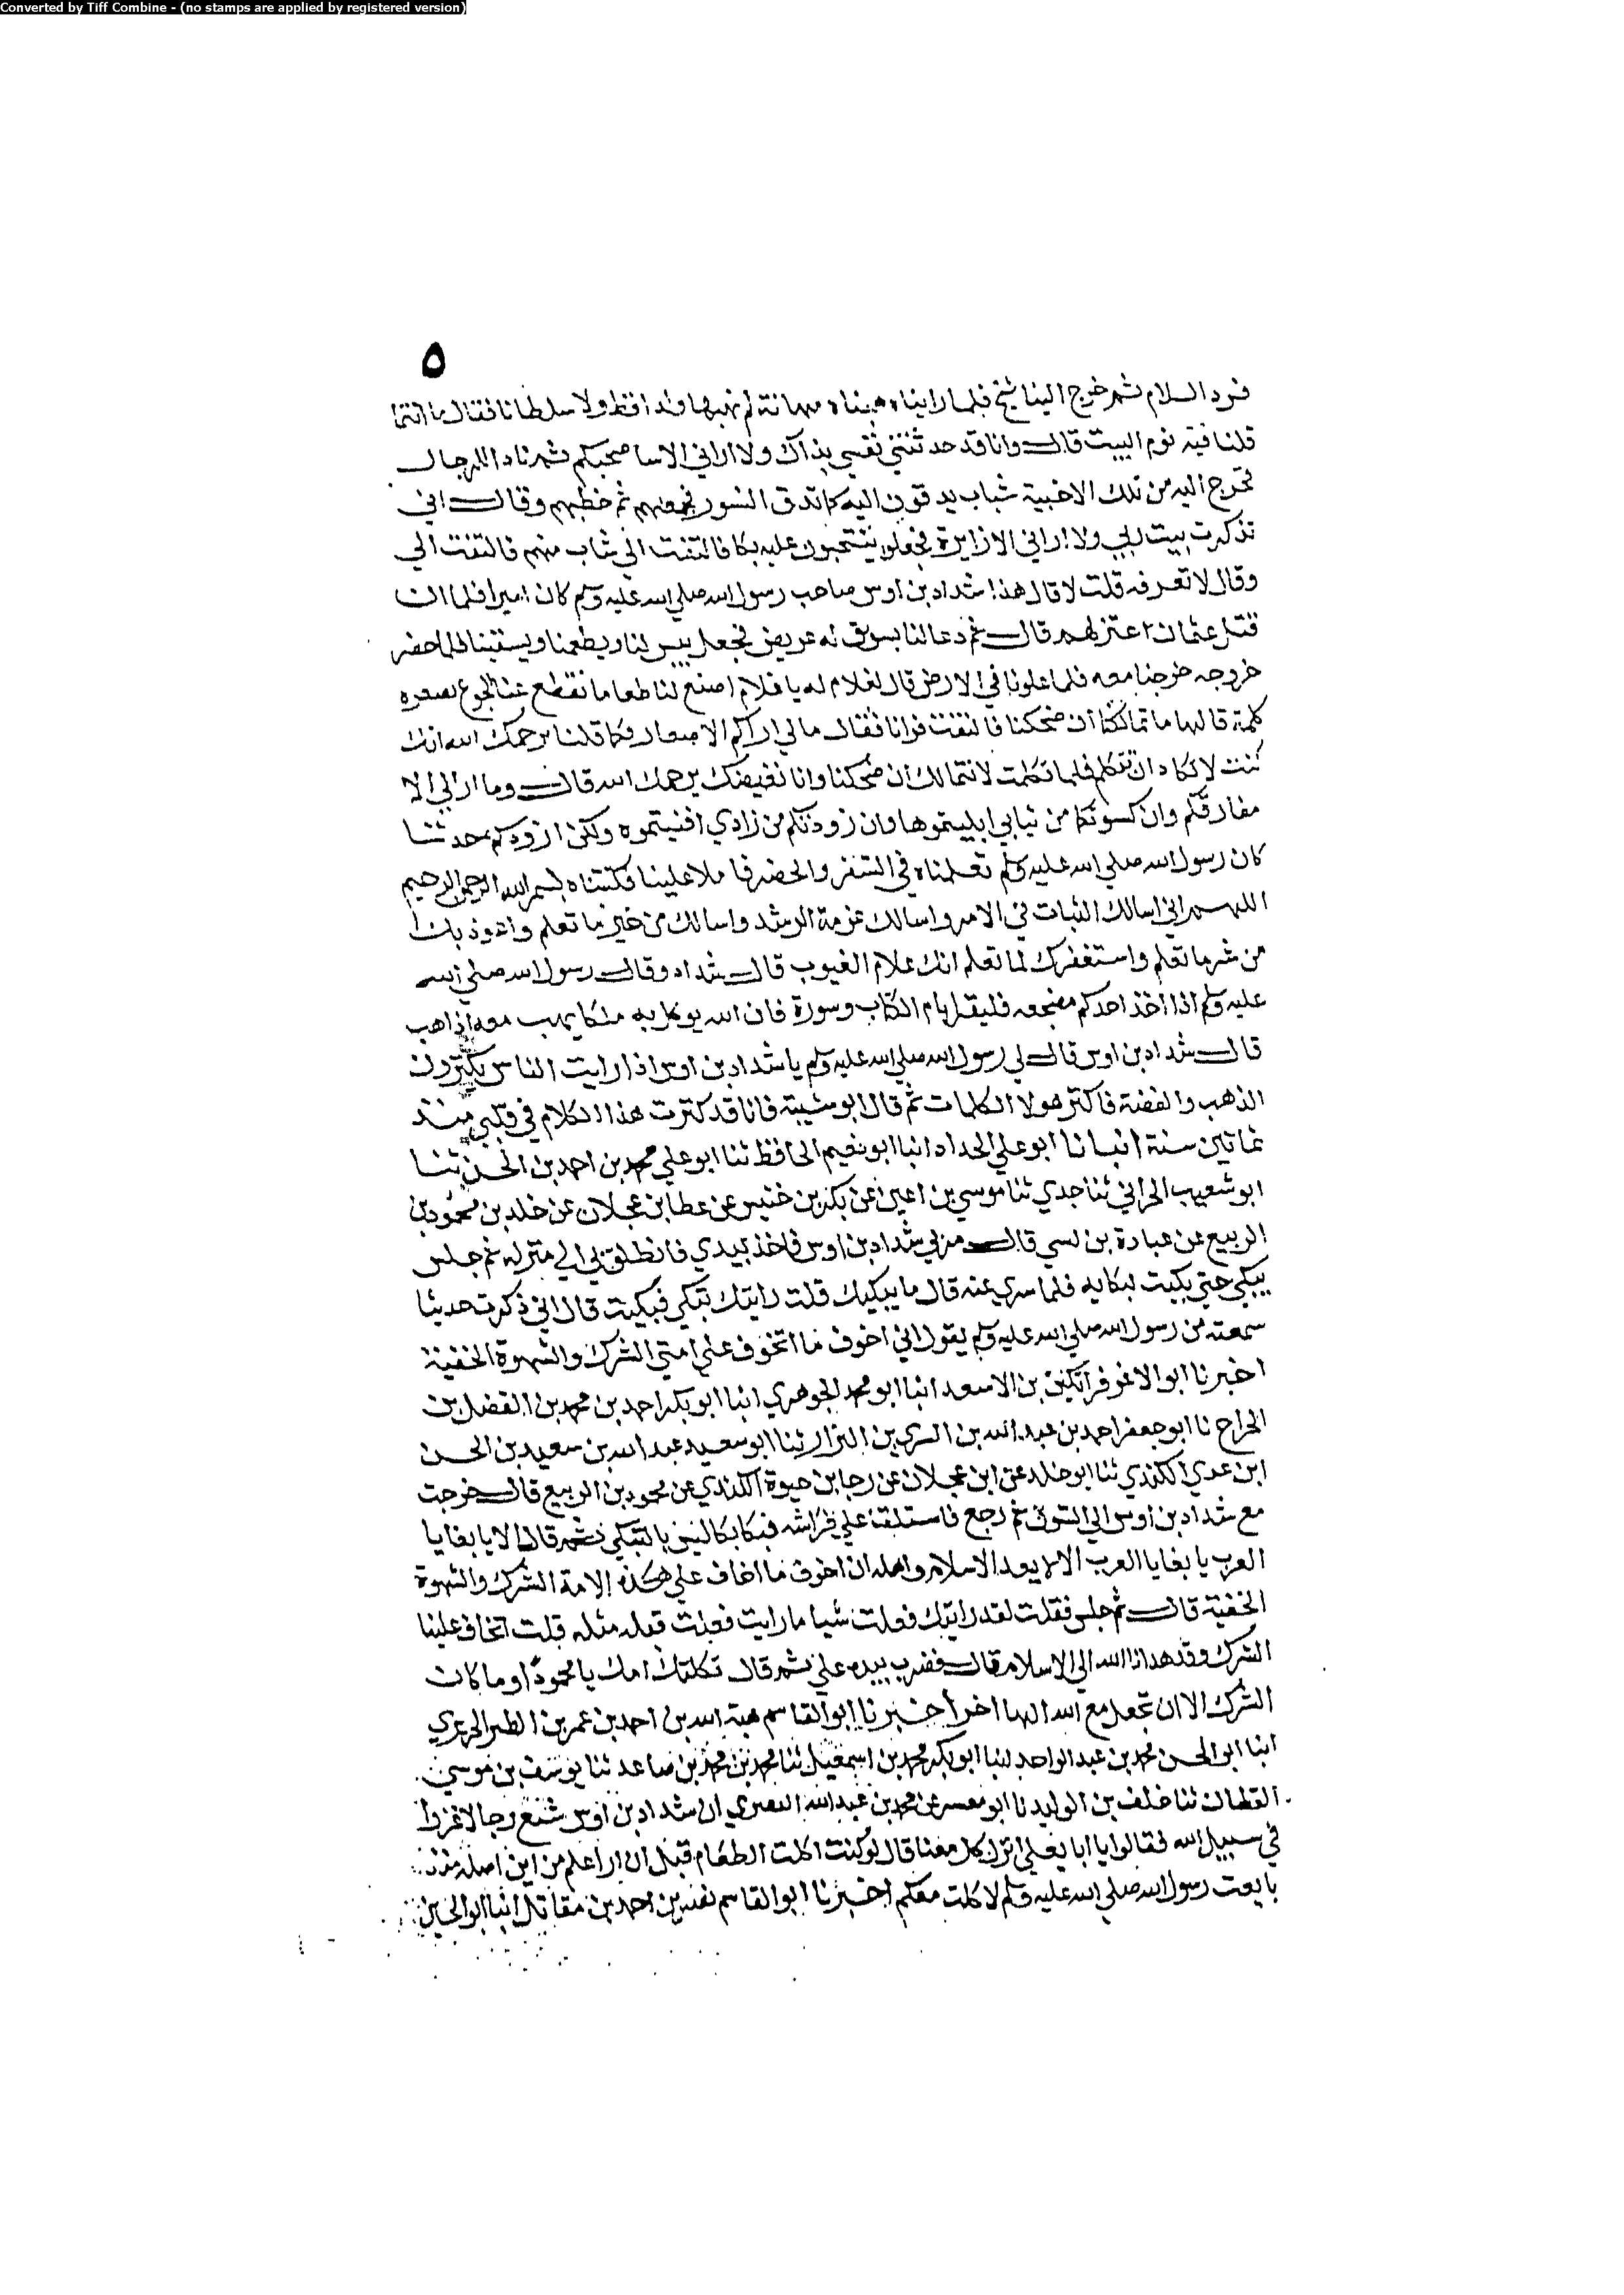 Converted by Tiff Combine - (no stamps are applied by registered version)
٥
فرد السلام ثم خرج الينا شيخ فلما رايناه هبناه مهابة لم نهبها ولدا قط ولا سلطانا فقال ما انتما
قلنا فتية نوم البيت قال وانا قد حدثتني نفسي بذاك ولا اراني الا ساصحبكم ثم نادا للرجال
تخرج اليه من تلك الاخبية شباب يدقون اليه كما تدق النسور فجمعهم ثم خطبهم وقال اني
تذكرت بيت ربي ولا اراني الا زايره فجعلوا ينتحبون عليه بكا فالتفت الى شاب منهم فالتفت الي
وقال لا تعرفه قلت لا قال هذا شداد بن اوس صاحب رسول الله صلي الله عليه وسلم كان اميرا فلما ان
قتل عثمان اعتزلهم قال ثم دعا لنا بسويق له عريض فجعل يبس لنا ويطعمنا ويسقينا فلما حضر
خروجه خرجنا معه فلما علونا في الارض قال لغلام له يا غلام اصنع لنا طعاما نقطع عنا الجوع بصغره
كلمة قالها ما تمالكنا ان ضحكنا فالتفت فرانا فقال ما لي اراكم الا صغار فكما قلنا يرحمك الله انك
كنت لا تكاد ان تتكلم فلما تكلمت لا نتمالك ان ضحكنا وانا نغيضك يرحمك الله قال وما اراني الا
مفارقكم وان كسوتكما من ثيابي ابليتموها وان زودتكم من زادي افنيتموه ولكن ازودكم حدثنا
كان رسول الله صلي الله عليه وسلم تعلمناه في السفر والحضر فاملا علينا فكتبناه بسم الله الرحمن الرحيم
اللهم اني اسالك الثبات في الامر واسالك عزمة الرشد واسالك من خير ما تعلم واعوذ بك
من شر ما تعلم واستغفرك لما تعلم انك علام الغيوب قال شداد وقال رسول الله صلي الله
عليه وسلم اذا اخذ احدكم مضجعه فليقرا بام الكتاب وسورة فان الله يوكل به ملكا يهب معه اذا هب
قال شداد بن اوس قال لي رسول الله صلي الله عليه وسلم يا شداد بن اوس اذا رايت الناس يكنزون
الذهب والفضة فاكنز هولا الكلمات ثم قال ابو شيبة فانا قد كنزت هذا الكلام في قلبي منذ
ثمانين سنة انبانا ابو علي الحداد انبا ابو نعيم الحافظ ثنا ابو علي محمد بن احمد بن الحسن ثنا
ابو شعيب الحراني ثنا جدي ثنا موسي بن اعين عن بكر بن خنيس عن عطا بن عجلان عن خلد بن محمود بن
الربيع عن عبادة بن نسي قال مر بي شداد بن اوس فاخذ بيدي فانطلق بي الي منزله ثم جلس
يبكي حتي بكيت لبكايه فلما سري عنه قال ما يبكيك قلت رايتك تبكي فبكيت قال اني ذكرت حديثا
سمعته من رسول الله صلي الله عليه وسلم يقول اني اخوف ما اتخوف علي امتي الشرك والشهوة الخفية
اخبرنا ابو الاغر قراتكين بن الاسعد انبا ابو محمد الجوهري انبا ابو بكر احمد بن محمد بن الفضل بن
الجراح نا ابو جعفر احمد بن عبد الله بن السري بن البزار ثنا ابو سعيد عبد الله بن سعيد بن الحسن
ابن عدي الكندي ثنا ابو خلد عن ابن عجلان عن رجا بن حيوة الكندي عن محمود بن الربيع قال خرجت
مع شداد بن اوس الي السوق ثم رجع فاستلقا علي فراشه فبكا بكا ليس بالتبكي ثم قال الا يا بغايا
العرب يا بغايا العرب الا لا يبعد الاسلام واهله ان اخوف ما اخاف علي هذه الامة الشرك والشهوة
الخفية قال ثم جلس فقلت لقد رايتك فعلت شيا ما رايت فعلت فعله مثله قلت اتخاف علينا
الشرك وقد هدانا الله الي الاسلام قال فضرب بيده علي ثم قال ثكلتك امك يا محمود او ما كان
الشرك الا ان تجعل مع الله الها اخر اخبرنا ابو القاسم هبة الله بن احمد بن عمر بن الطبر الحريري
انبا ابو الحسن محمد بن عبد الواحد انبا ابو بكر محمد بن اسمعيل ثنا محمد بن محمد بن صاعد ثنا يوسف بن موسي
القطان ثنا خلف بن الوليد نا ابو معشر عن محمد بن عبد الله البصري ان شداد بن اوس شيع رجالا غزوا
في سبيل الله فقالوا يا ابا يعلي انزل كل معنا قال لو كنت اكلت الطعام قبل ان اعلم من اين اصله منذ
بايعت رسول الله صلي الله عليه وسلم لاكلت معكم اخبرنا ابو القاسم نصر بن احمد بن مقاتل انبا ابو الحسن